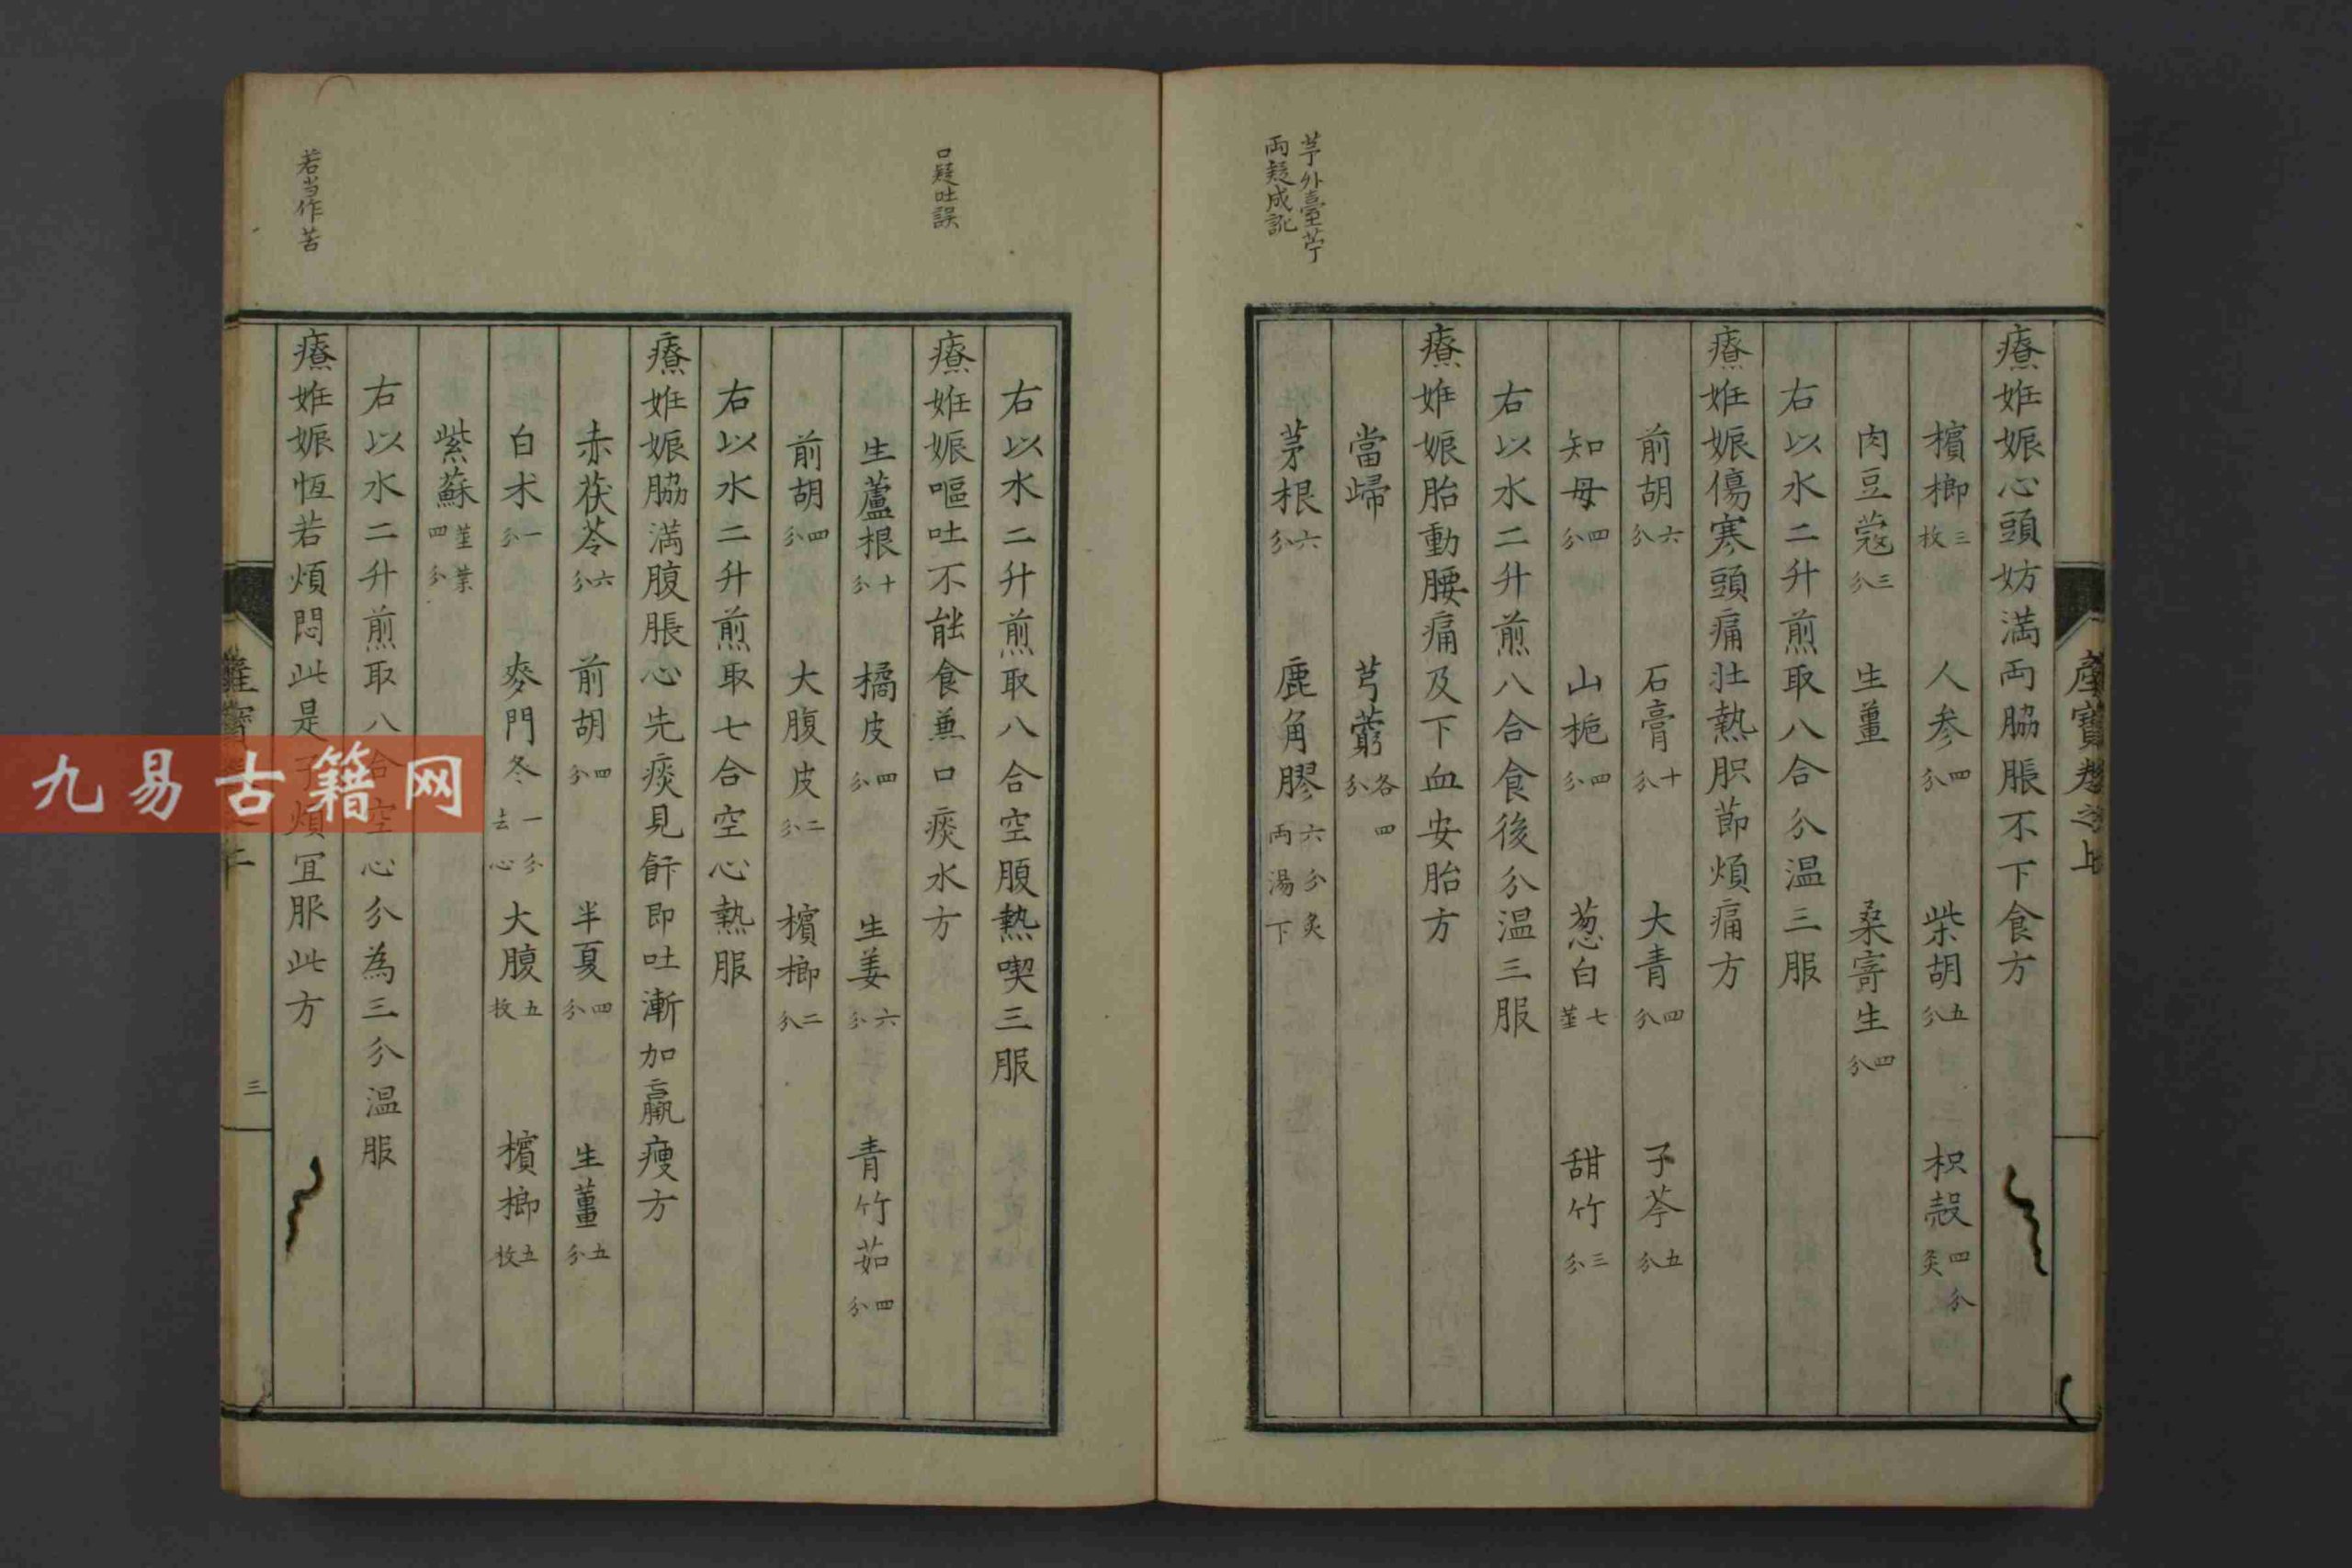 産寶卷之上
療姙娠心頭妨満両脇脹不下食方
檳榔三枚 人参四分 柴胡五分 枳殻四分炙
肉豆蔻三分 生薑 桒寄生四分
右以水二升煎取八合分温三服
療姙娠傷寒頭痛壮熱肢節煩痛方
前胡六分 石膏十分 大青四分 子芩五分
知母四分 山梔四分 葱白七莖 甜竹三分
右以水二升煎八合食後分温三服
療姙娠胎動腰痛及下血安胎方
當歸 芎藭各四分
茅根六分 鹿角膠六分炙両湯下
芧外臺苧
両疑成訛
右以水二升煎取八合空腹熱喫三服
療姙娠嘔吐不能食兼口痰水方
口疑吐誤
生蘆根十分 橘皮四分 生姜六分 青竹茹四分
前胡四分 大腹皮二分 檳榔二分
右以水二升煎取七合空心熱服
療姙娠脇満腹脹心先痰見飰即吐漸加羸瘦方
赤茯苓六分 前胡四分 半夏四分 生薑五分
白朮一分 麥門冬一分去心 大腹五枚 檳榔五枚
紫蘇莖葉四分
右以水二升煎取八合空心分為三分温服
療姙娠恆若煩悶此是子煩宜服此方
若当作苦
三
九易古籍网